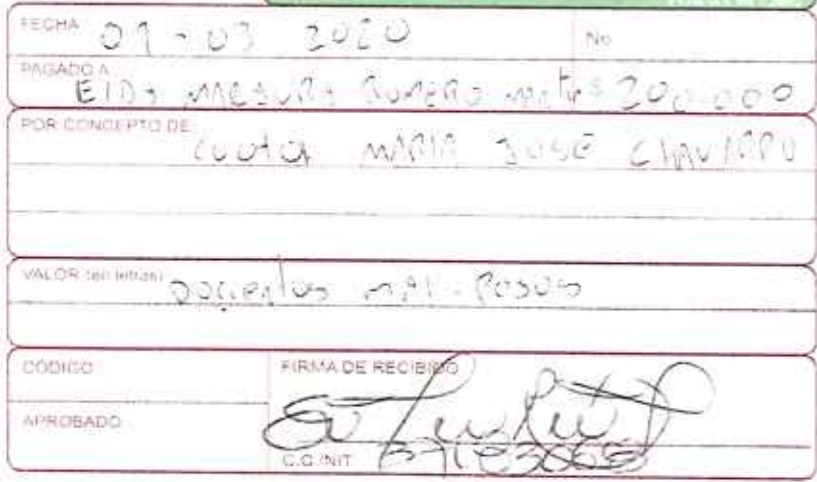 FECHA 09-03 2020 No
PAGADO A EIDA ROMERO $ 200.000
POR CONCEPTO DE:
cuota MARIA JOSE CHAVARRO
VALOR (en letras) Docientos mil - Pesos
CÓDIGO FIRMA DE RECIBIDO
APROBADO
C.C./NIT